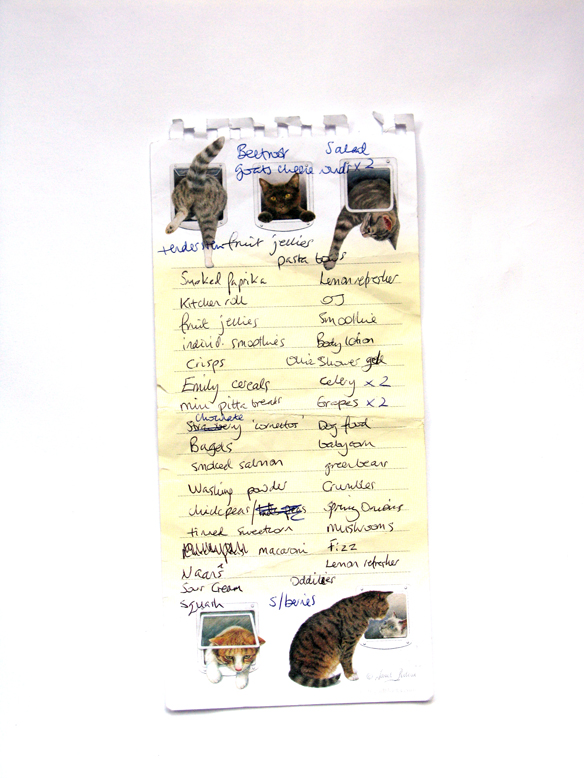 Beetroot Salad
goats cheese rounds x 2
fruit jellies
pasta bows
Smoked paprika Lemon refresher
Kitchen roll OJ
fruit jellies Smoothie
individ. smoothies Body lotion
Crisps Olive Shower gel
Emily cereals Celery x 2
mini pitta breads Grapes x 2
chocolate
Strawberry 'cornetto' Dog food
Bagels babycorn
smoked salmon green beans
Washing powder Crumbles
chickpeas/ Spring Onions
tinned sweetcorn mushrooms
macaroni Fizz
Naans Lemon refresher
Oddities
Sour Cream
Squash S/berries